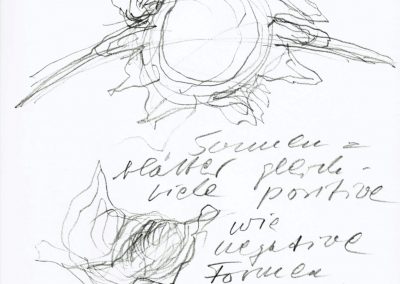 Sonnen =
blätter gleich -
viele positive
wie
negative
Formen